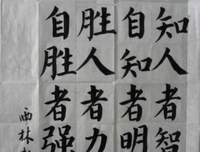 知人者智
自知者明
胜人者力
自胜者强
西林